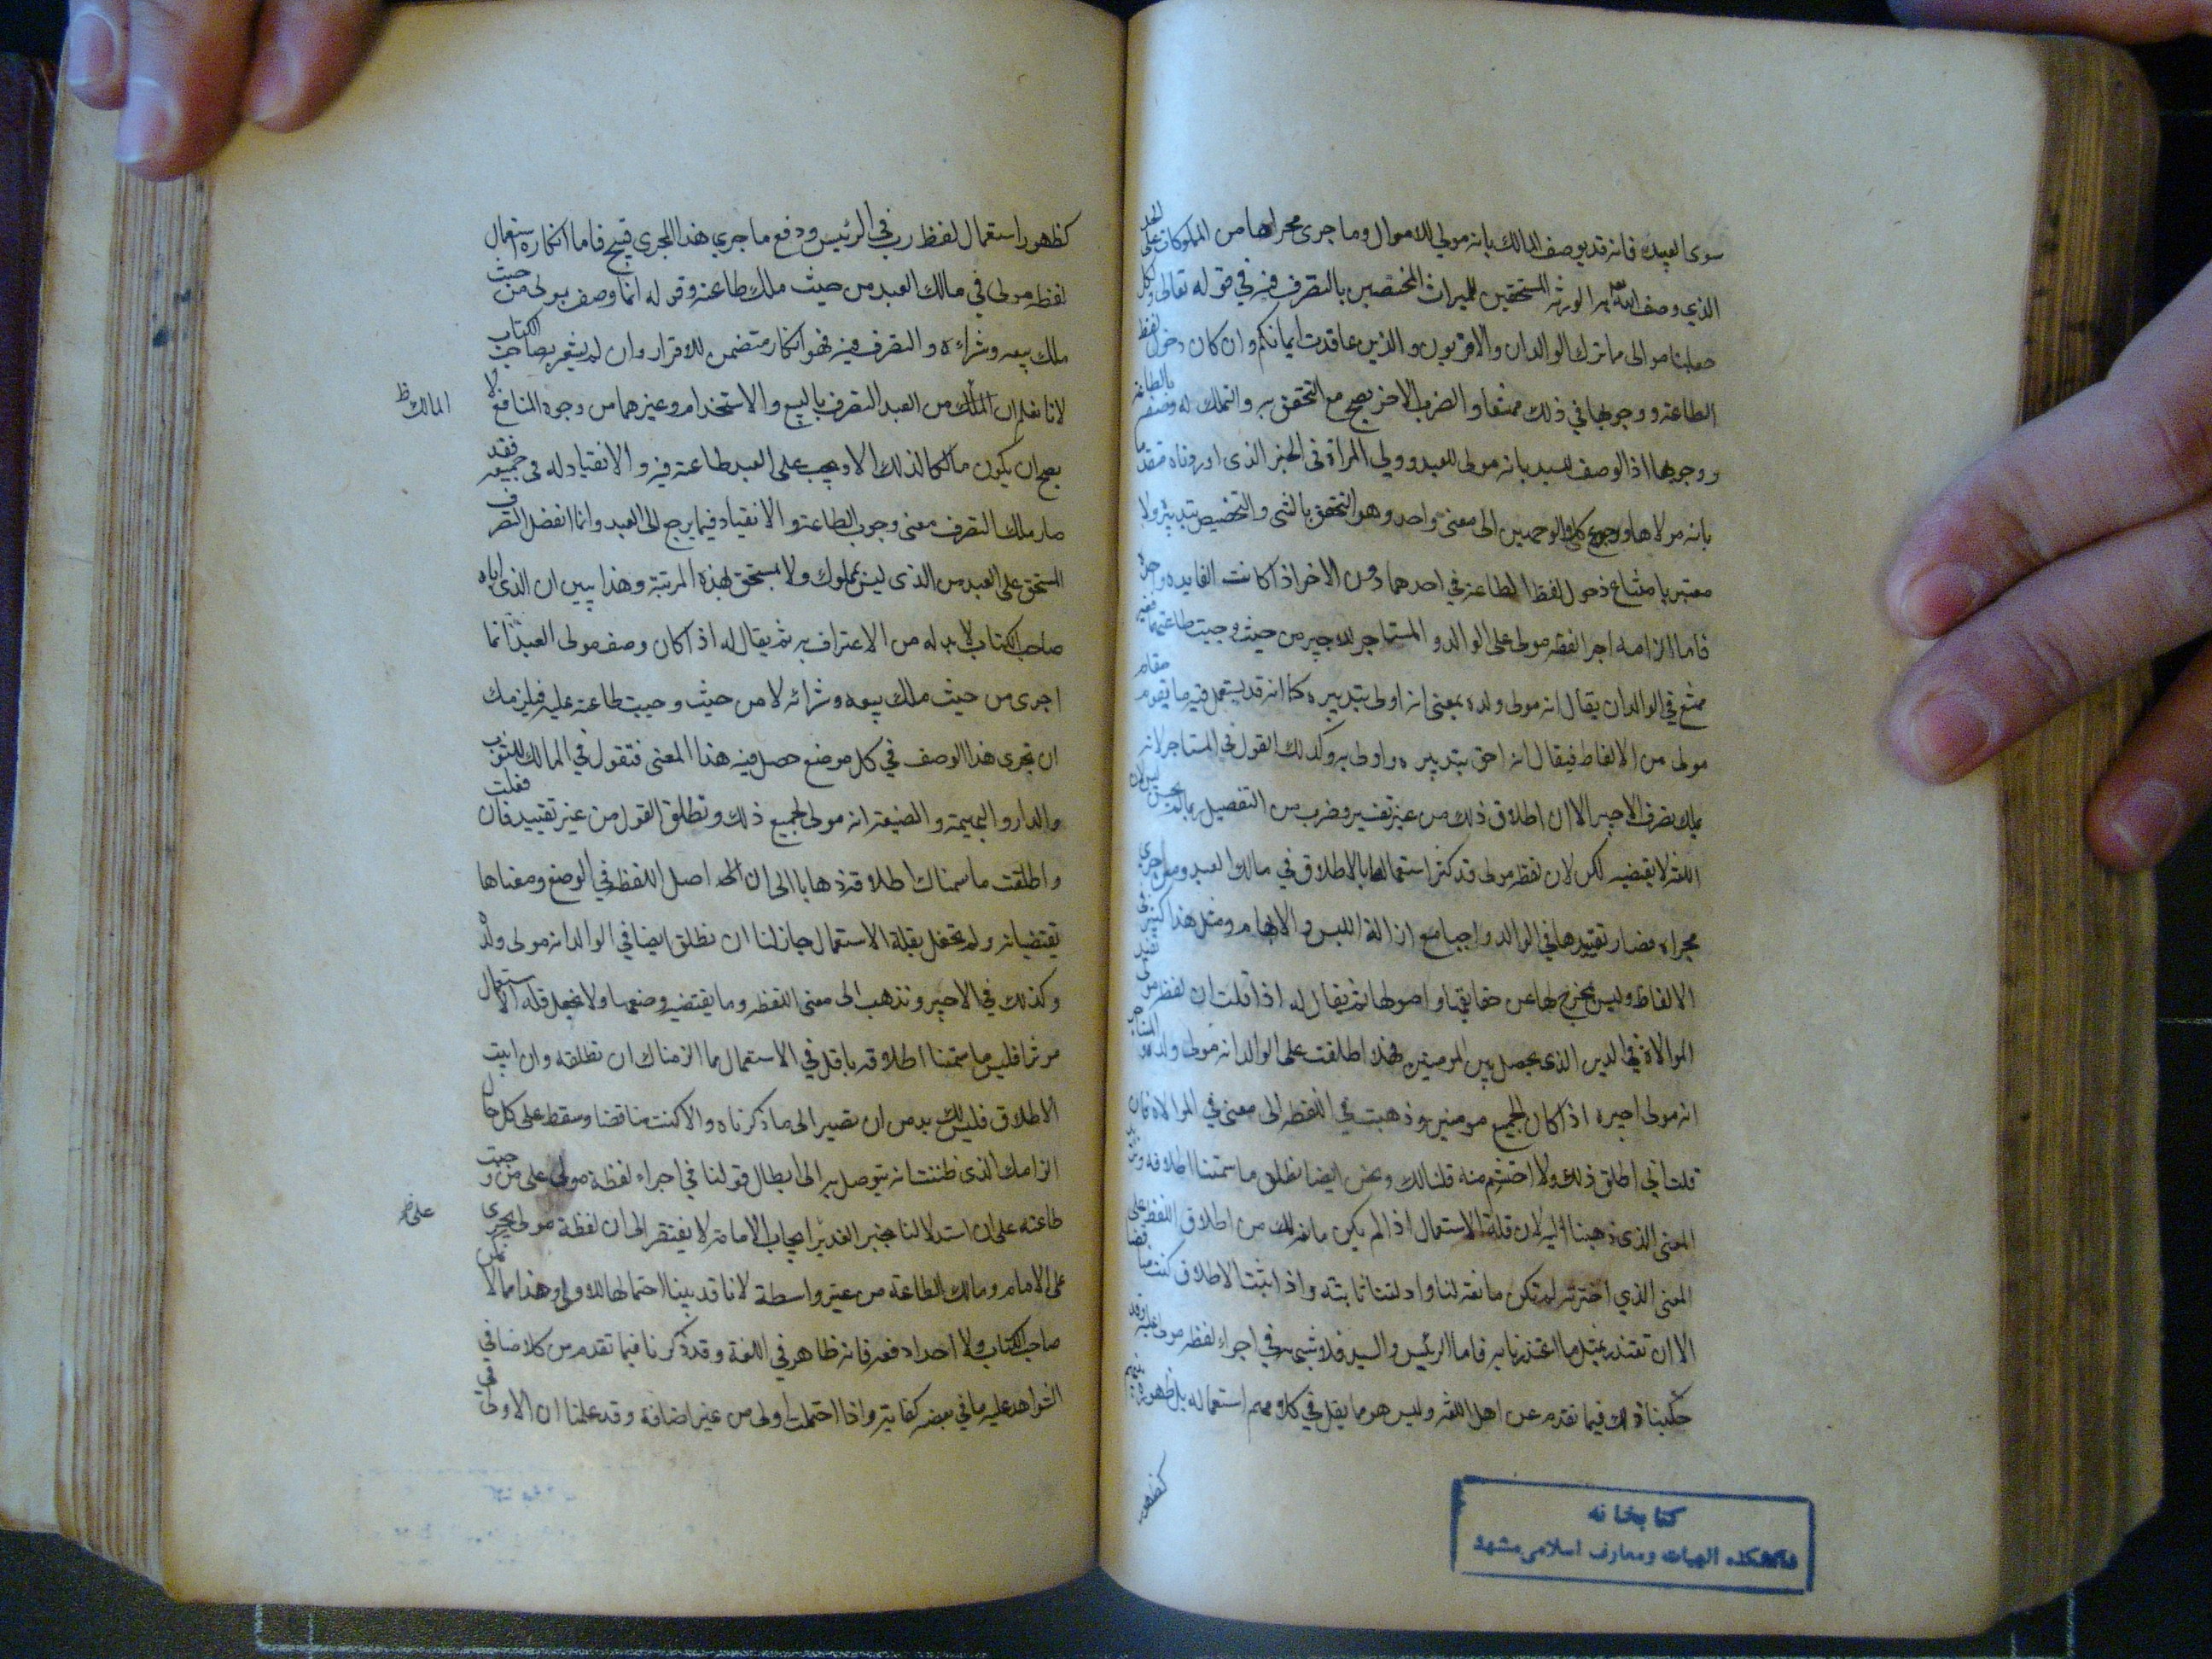 سوى العبيد فانه قد يوصف المالك بانه مولى للاموال وما جرى مجراها من المملوكات على الحد
الذي وصف الله به الورثة المستحقين للميراث المختصين بالتصرف فيه في قوله تعالى ولكل
جعلنا موالى مما ترك الوالدان والاقربون والذين عاقدت ايمانكم وان كان دخول لفظ
الطاعة ووجوبها في ذلك ممتنعا والضرب الاخر يصح مع التحقق به والتملك له وصفه بالطاعة
ووجوبها اذ الوصف للسيد بانه مولى للعبد وولي المراة في الخبر الذى اوردناه متقدما
بانه مولاها ورجوع كلى الوجهين الى معنى واحد وهو التحقق بالشى والتخصيص بتدبيره ولا
معتبر بامتناع دخول لفظ الطاعة في احدهما دون الاخر اذ كانت الفايده واحدة
فاما الزامه اجرا لفظه مولى على الوالد والمستاجر للاجير من حيث وجبت طاعتهما فغير
ممتنع في الوالد ان يقال انه مولى ولده بمعنى انه اولى بتدبيره كما انه قد يستعمل فيه ما يقوم مقام
مولى من الالفاظ فيقال انه احق بتدبيره واولى به وكذلك القول في المستاجر لانه
يملك تصرف الاجير الا ان اطلاق ذلك من غير تفسير وضرب من التفصيل ربما لم يحسن ليس لان
اللغة لا يقتضيه لكن لان لفظه مولى قد كثر استعمالها بالاطلاق في مالك العبد ومن جرى
مجراه فصار تقييدها في الوالد واجبا مع ازالة اللبس والابهام ومثل هذا كثير في
الالفاظ وليس بمخرج لها عن حقايقها واصولها ثم يقال له اذا قلت ان لفظه مولى تفيد
الموالاة في الدين الذى يحصل بين المومنين فهذا اطلقت على الوالد انه مولى ولده
انه مولى اجيره اذا كان الجميع مومنين وذهبت في اللفظه الى معنى في الموالاه فان
قلت اني اطلق ذلك ولا احتشم منه قلنا لك ونحن ايضا نطلق ما سمتنا اطلاقه ونريد
المعنى الذى ذهبنا اليه لان قلة الاستعمال اذا لم يكن مانعه لك من اطلاق اللفظ على
المعنى الذي اخترته لم تكن مانعه لنا وادلتنا ثابتة واذا ابيت الاطلاق كنت مناقضا
الا ان تعتذر بمثل ما اعتذرنا به فاما الرئيس والسيد فلا شبهه في اجراء لفظه مولى عليه وقد
حكينا ذلك فيما تقدم عن اهل اللغه وليس هو مما يقل في كلامهم استعماله بل ظهوره فيهم
كظهور
كتابخانه
دانشكده الهيات ومعارف اسلامى مشهد
كظهور استعمال لفظ رب في الرئيس ودفع ما جرى هذا المجرى قبيح فاما انكاره استعمال
لفظه مولى في مالك العبد من حيث ملك طاعته وقوله انما وصف بمولى من حيث
ملك بيعه وشراءه والتصرف فيه فهو انكار متضمن للاقرار وان لم يشعر به صاحب الكتاب
لانا نعلم ان المالك من العبد التصرف بالبيع والاستخدام وغيرهما من وجوه المنافع لا
المالك ظ
يصح ان يكون مالكا لذلك الا ويجب على العبد طاعته فيه والانقياد له في جميعه فقد
صار ملك التصرف معنى وجوب الطاعة والانقياد فيما يرجع الى العبد وانما انفصل التصرف
المستحق على العبد من الذى ليس بمملوك ولا يستحق لهذه المرتبة وهذا يبين ان الذى اباه
صاحب الكتاب لا بد له من الاعتراف به ثم يقال له اذا كان وصف مولى العبد انما
اجرى من حيث ملك بيعه وشرائه لا من حيث وجبت طاعته عليه فيلزمك
ان تجرى هذا الوصف في كل موضع حصل فيه هذا المعنى فتقول في المالك للثوب
والدار والبهيمة والضيعة انه مولى لجميع ذلك وتطلق القول من غير تقييد فان فعلت
واطلقت ما سمناك اطلاقه ذهابا الى ان اصل اللفظة في الوضع ومعناها
يقتضيانه ولم تحفل بقلة الاستعمال جاز لنا ان نطلق ايضا في الوالد انه مولى ولده
وكذلك في الاجير ونذهب الى معنى اللفظه وما يقتضيه وضعها ولا نجعل قلة الاستعمال
موثرا فليس ما سمتنا اطلاقه باقل في الاستعمال مما الزمناك ان تطلقه وان ابيت
الاطلاق فليس لك بد من ان تصير الى ما ذكرناه والا كنت مناقضا وسقط على كل حال
الزامك الذى ظننت انه يتوصل به الى ابطال قولنا في اجراء لفظة مولى على من وجبت
طاعته على ان استدلالنا بخبر الغدير في ايجاب الامامة لا يفتقر الى ان لفظة مولى تجرى
على ص
على الامام ومالك الطاعة من غير واسطة لانا قد بينا احتمالها لاولى وهذا مما لا يمكن
صاحب الكتاب ولا احدا دفعه فانه ظاهر في اللغة وقد ذكرنا فيما تقدم من كلامنا في
الشواهد عليه ما في بعضه كفاية واذا احتملت اولى من غير اضافة وقد علمنا ان الاولى في